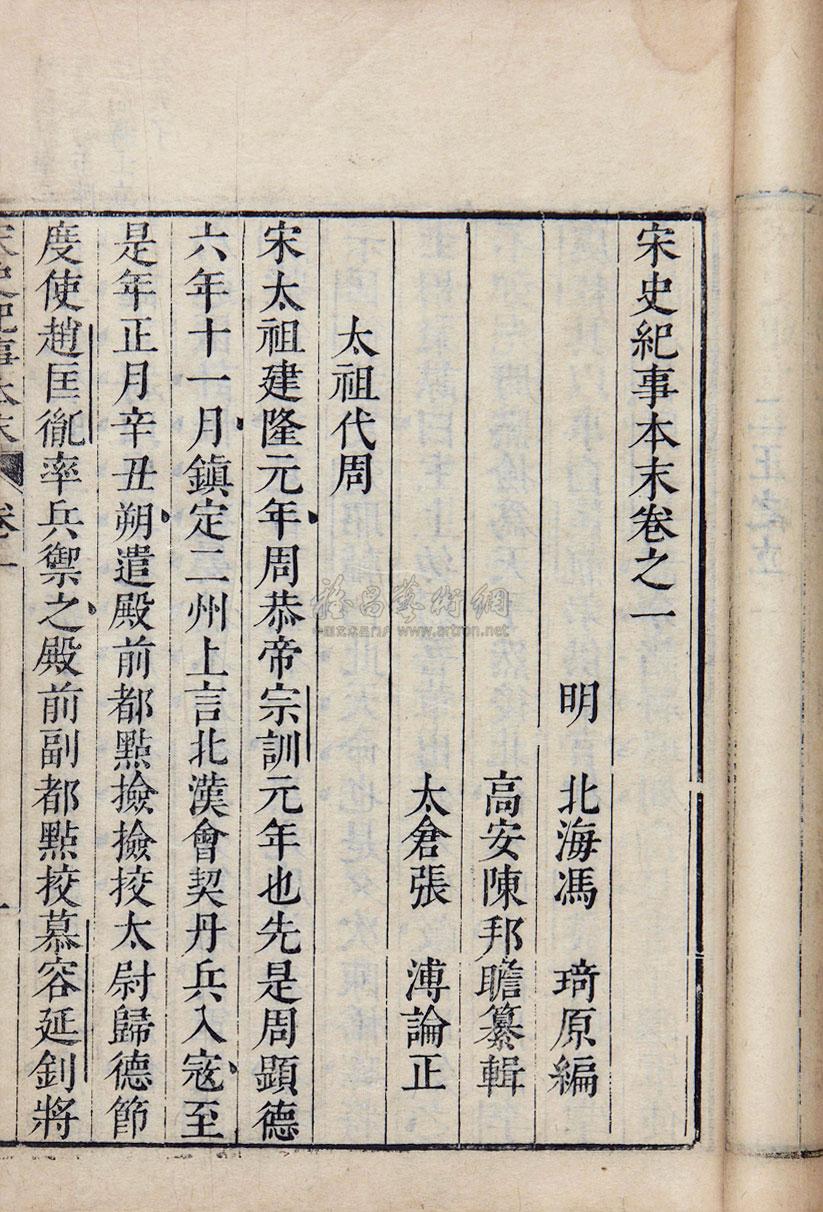 宋史紀事本末卷之一
明 北海馮 琦原編
高安陳邦瞻纂輯
太倉張 溥論正
太祖代周
宋太祖建隆元年周恭帝宗訓元年也先是周顯德
六年十一月鎮定二州上言北漢會契丹兵入寇至
是年正月辛丑朔遣殿前都點撿撿挍太尉歸德節
度使趙匡胤率兵禦之殿前副都點挍慕容延釗將
宋史紀事本末 卷一
一
雅昌藝術網
www.artron.net